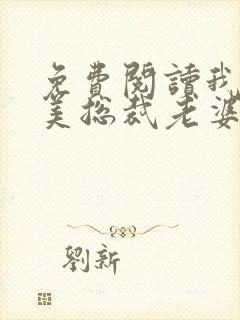 免費閱讀我
美總裁老婆
劉新